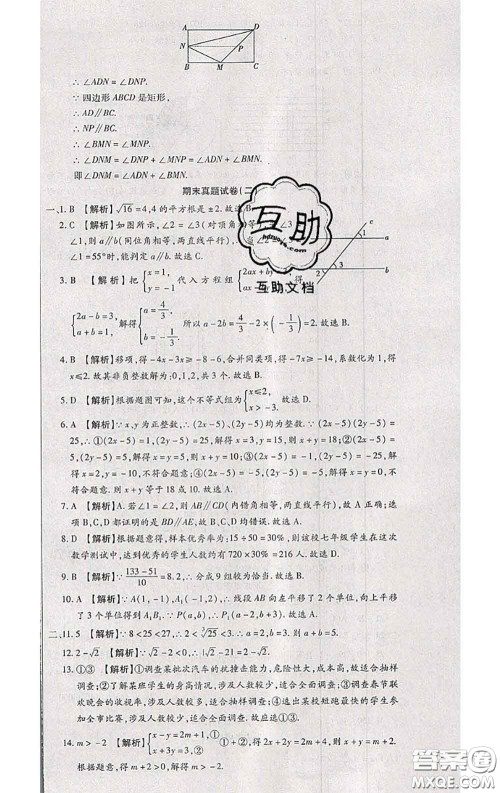 A D
N P
B M C
∴ ∠ADN = ∠DNP.
∵ 四边形 ABCD 是矩形,
∴ AD∥BC.
∴ NP∥BC.
∴ ∠BMN = ∠MNP.
∴ ∠DNM = ∠DNP + ∠MNP = ∠ADN + ∠BMN.
即∠DNM = ∠ADN + ∠BMN.
期末真题试卷(二
一、1. B 【解析】√16 = 4,4 的平方根是 ±2. 故选 B.
2. C 【解析】如图所示,∠2 + ∠3
∠1,则 a∥b(同位角相等,两直线平行)
∠1 = 55°时,能判定 a∥b. 故选 C.
3. B 【解析】把 {x = 1, y = -1 代入方程组
{2a - b = 3, a + b = 1, 解得 所以 a - 2b = 4/3 - 2×(-1/3) = 2. 故选 B.
4. B 【解析】移项,得 -4x - 3x ≥ -8 - 6,合并同类项,得 -7x ≥ -14,系数化为 1,得
x≤2. 故其非负整数解为:0,1,2,共 3 个. 故选 B.
5. D 【解析】根据题图可知,这个不等式组为{x≤2, x > -3. 故选 D.
6. A 【解析】∵x,y 为正整数,∴(2x - 5)、(2y - 5)均为整数. ∵(2x - 5)(2y - 5) =
25,∴①(2x - 5) = 1,(2y - 5) = 25,解得 x = 3,y = 15,所以 x + y = 18;②(2x -
5) = 5,(2y - 5) = 5,解得 x = 5,y = 5,所以 x + y = 10;③(2x - 5) = -1,(2y - 5) = -25,
解得 x = 2,y = -10,不符合题意;④(2x - 5) = -5,(2y - 5) = -5,解得 x = 0,y = 0,
不符合题意. 则 x + y 等于 18 或 10. 故选 A.
7. A 【解析】A. 若∠1 = ∠2,则 AB∥CD(内错角相等,两直线平行),故 A 正确;选
项 B、C、D 都是证明 BD∥AE,故 B、C、D 均错误. 故选 A.
8. D 【解析】根据题意得,样本优秀率为:15÷50 = 30%,所以该校七年级学生在这次
数学测试中,达到优秀的学生人数约有 720×30% = 216 人. 故选 D.
9. B 【解析】∵(133 - 51)/10 = 8.2,∴分成 9 组较为恰当. 故选 B.
10. A 【解析】∵A(1, -1),A₁(-1,2),∴线段 AB 向左平移了 2 个单位,向上平移
了 3 个单位得到 A₁B₁. ∵P(a,b),∴P₁(a - 2,b + 3). 故选 A.
二、11. 5 【解析】∵8 < 25 < 27,∴2 < ∛25 < 3,∴2 + 3 = 5.
12. 2 - √2 【解析】∵√2 - 2 < 0,∴|√2 - 2| = 2 - √2.
13. ①③ 【解析】①调查某批次汽车的抗撞击能力,危险性大,成本高,故适合抽样
调查;②了解某班学生的身高情况,涉及人数较少,适合全面调查;③调查春节联
欢晚会的收视率,涉及人数较多,适合抽样调查;④选出某校短跑最快的学生参加
全市比赛,涉及人数较少,适合全面调查. 故应选①③.
14. m > -2 【解析】{x - y = 2m + 1,① x + 3y = 3,② ① + ②,得 2x + 2y = 2m + 4,则 x + y = m + 2.
根据题意,得 m + 2 > 0,解得 m > -2.
互助
互助文档
答案圈
MXQE.COM